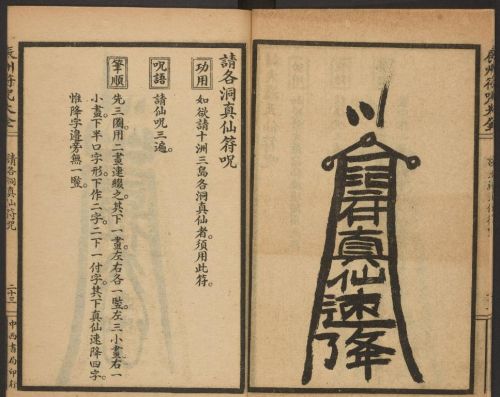 真仙速降
請各洞真仙符咒
功用
如欲請十洲三島各洞真仙者。須用此符。
咒語
請仙咒三遍。
筆順
先三圈。用二畫連綴之。其下一畫。左右各一竪。左三小畫。右一
小畫。下半口字形。下作二字。二下一付字。其下真仙速降四字。
惟降字邊旁無一竪。
辰州符咒大全
請各洞真仙符咒
二十三
中西書局印行